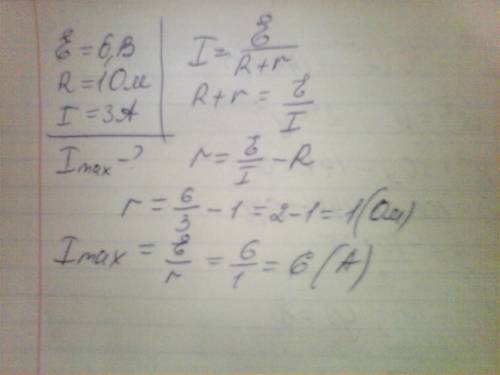 ℰ = 6,В
R = 1Ом
I = 3А
Imax - ?
I = ℰ/(R+r)
R+r = ℰ/I
r = ℰ/I - R
r = 6/3 - 1 = 2-1 = 1(Ом)
Imax = ℰ/r = 6/1 = 6(А)